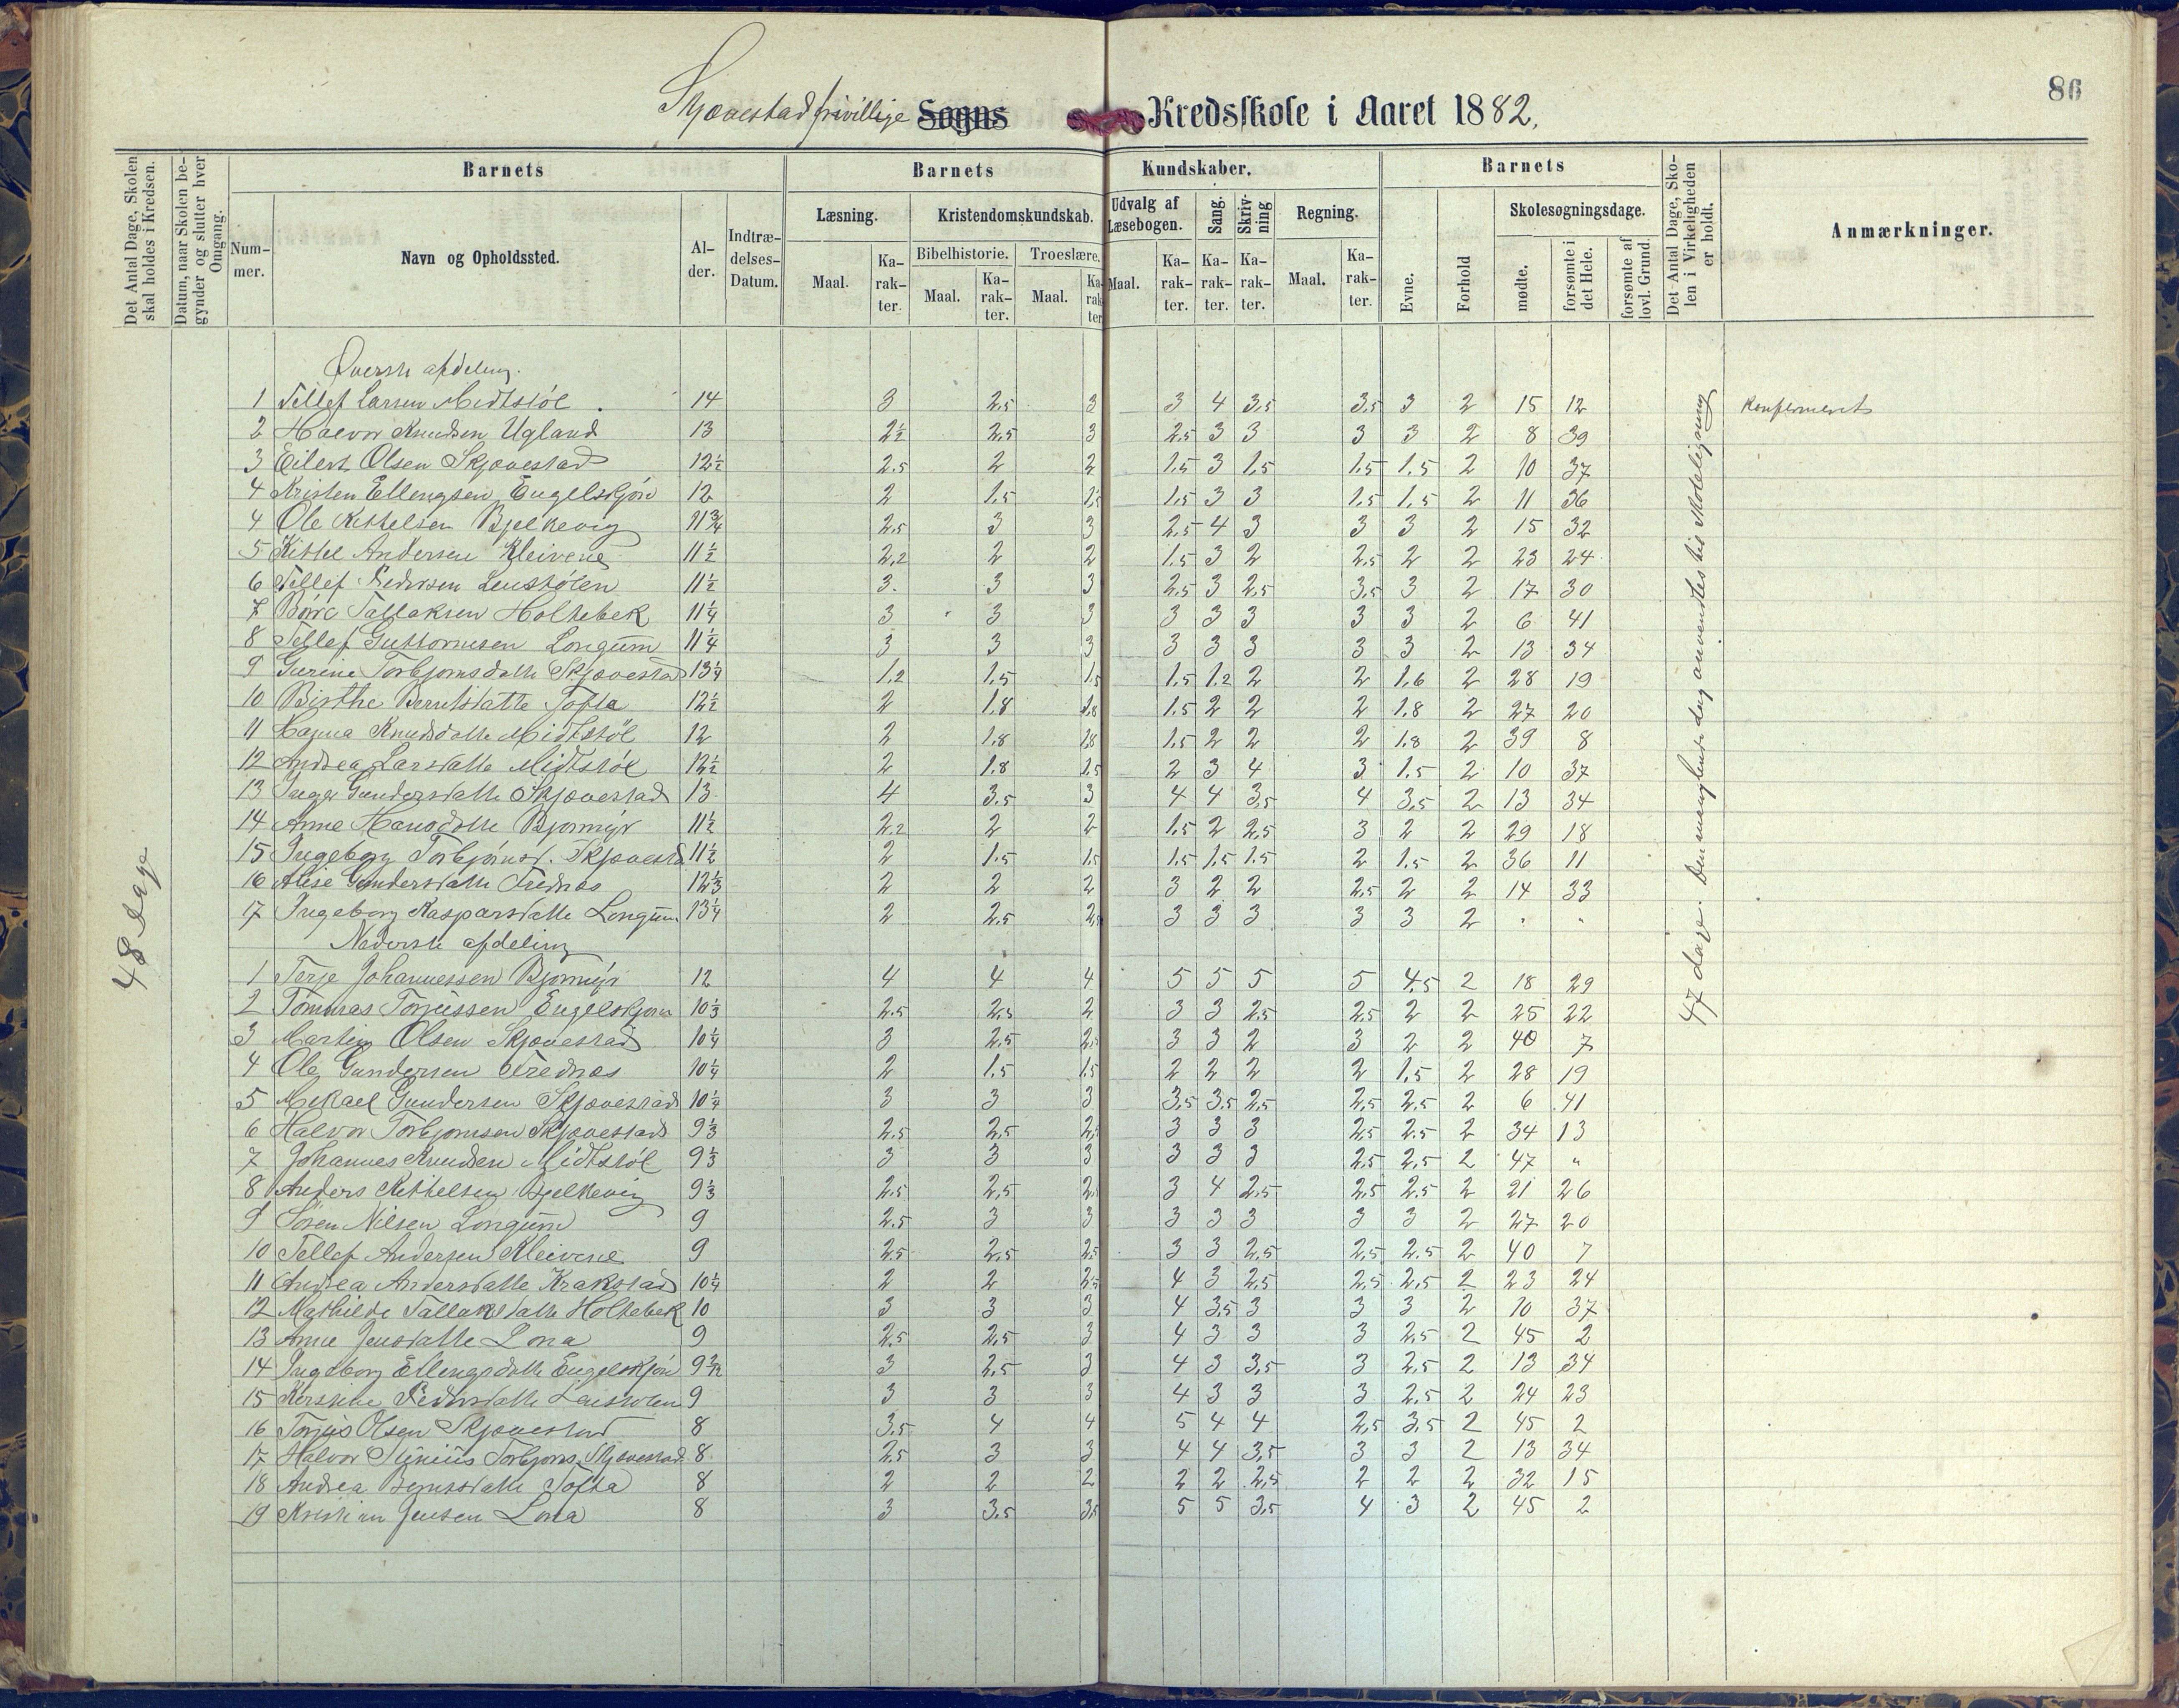 86
Skjævestad frivillige Sogns Kredsskole i Aaret 1882.
Det Antal Dage, Skolen skal holdes i Kredsen.
Datum, naar Skolen begynder og slutter hver Omgang.
Barnets
Num-mer.
Navn og Opholdssted.
Al-der.
Indtræ-delses-Datum.
Barnets Kundskaber.
Læsning.
Maal.
Ka-rak-ter.
Kristendomskundskab.
Bibelhistorie.
Maal.
Ka-rak-ter.
Troeslære.
Maal.
Ka-rak-ter.
Udvalg af Læsebogen.
Maal.
Ka-rak-ter.
Sang.
Ka-rak-ter.
Skriv-ning
Ka-rak-ter.
Regning.
Maal.
Ka-rak-ter.
Barnets
Evne.
Forhold
Skolesøgningsdage.
mødte.
forsømte i det Hele.
forsømte af lovl. Grund.
Det Antal Dage, Sko-len i Virkeligheden er holdt.
Anmærkninger.
48 dage
Øverste afdeling.
1 Tellef Larsen Midtstöl 14 3 2.5 3 3 4 3.5 3.5 3 2 15 12 Konfirmeret
2 Halvor Knudsen Ugland 13 2½ 2.5 3 2.5 3 3 3 3 2 8 39
3 Eilert Olsen Skjævestad 12½ 2.5 2 2 1.5 3 1.5 1.5 1.5 2 10 37
4 Kristen Ellengsen Engelskjön 12 2 1.5 1.5 1.5 3 3 1.5 1.5 2 11 36
4 Ole Kittelsen Bjelkevig 11¾ 2.5 3 3 2.5 4 3 3 3 2 15 32
5 Kittel Andersen Kleivene 11½ 2.2 2 2 1.5 3 2 2.5 2 2 23 24
6 Tellef Pedersen Leustölen 11½ 3 3 3 2.5 3 2.5 3.5 3 2 17 30
7 Börre Tallaksen Holtebek 11¼ 3 3 3 3 3 3 3 3 2 6 41
8 Tellef Guttormsen Longum 11¼ 3 3 3 3 3 3 3 3 2 13 34
9 Gurine Torbjornsdatte Skjævestad 13¼ 1.2 1.5 1.5 1.5 1.2 2 2 1.6 2 28 19
10 Birthe Berntsdatte Tofta 12½ 2 1.8 1.8 1.5 2 2 2 1.8 2 27 20
11 Hagna Knudsdatte Midtstöl 12 2 1.8 1.8 1.5 2 2 2 1.8 2 39 8
12 Andrea Larsdatte Midtstöl 12½ 2 1.8 1.5 2 3 4 3 1.5 2 10 37
13 Inger Gundersdatte Skjævestad 13 4 3.5 3 4 4 3.5 4 3.5 2 13 34
14 Anne Hansdatte Bjormyr 11½ 2.2 2 2 1.5 2 2.5 3 2 2 29 18
15 Ingeborg Torbjörnsd. Skjævestad 11½ 2 1.5 1.5 1.5 1.5 1.5 2 1.5 2 36 11
16 Alise Gundersdatte Trednæs 12⅓ 2 2 2 3 2 2 2.5 2 2 14 33
17 Ingeborg Kasparsdatte Longum 13¼ 2 2.5 2.5 3 3 3 3 3 2 " "
Nederste afdeling
1 Terje Johannessen Bjormyr 12 4 4 4 5 5 5 5 4.5 2 18 29
2 Tommas Torjussen Engelskjorn 10⅓ 2.5 2.5 2 3 3 2.5 2.5 2 2 25 22
3 Martin Olsen Skjævestad 10¼ 3 2.5 2.5 3 3 2 3 2 2 40 7
4 Ole Gundersen Trednæs 10¼ 2 1.5 1.5 2 2 2 2 1.5 2 28 19
5 Mikael Gundersen Skjævestad 10¼ 3 3 3 3.5 3.5 2.5 2.5 2.5 2 6 41
6 Halvor Torbjornsen Skjævestad 9⅓ 2.5 2.5 2.5 3 3 3 2.5 2.5 2 34 13
7 Johannes Knudsen Midtstöl 9⅓ 3 3 3 3 3 3 2.5 2.5 2 47 "
8 Anders Kittelsen Bjelkevig 9⅓ 2.5 2.5 2.5 3 4 2.5 2.5 2.5 2 21 26
9 Sören Nilsen Longum 9 2.5 3 3 3 3 3 3 3 2 27 20
10 Tellef Andersen Kleivene 9 2.5 2.5 2.5 3 3 2.5 2.5 2.5 2 40 7
11 Andrea Andersdatte Krakstad 10¼ 2 2 2.5 4 3 2.5 2.5 2.5 2 23 24
12 Mathilde Tallaksdatte Holtebek 10 3 3 3 4 3.5 3 3 3 2 10 37
13 Anne Jensdatte Lona 9 2.5 2.5 3 4 3 3 3 2.5 2 45 2
14 Ingeborg Ellengsdatte Engelskjön 9 3 2.5 3 4 3 3.5 3 2.5 2 13 34
15 Kirstine Pedersdatte Leustolen 9 3 3 3 4 3 3 3 2.5 2 24 23
16 Torjus Olsen Skjævestad 8 3.5 4 4 5 4 4 2.5 3.5 2 45 2
17 Halvor Junius Torbjorns. Skjævestad 8 2.5 3 3 4 4 3.5 3 3 2 13 34
18 Andrea Berntsdatte Tofta 8 2 2 2 2 2 2.5 2 2 2 32 15
19 Kristian Jensen Lona 8 3 3.5 3.5 5 5 3.5 4 3 2 45 2
47 dage. Den manglende dag anvendtes til Skoleligning